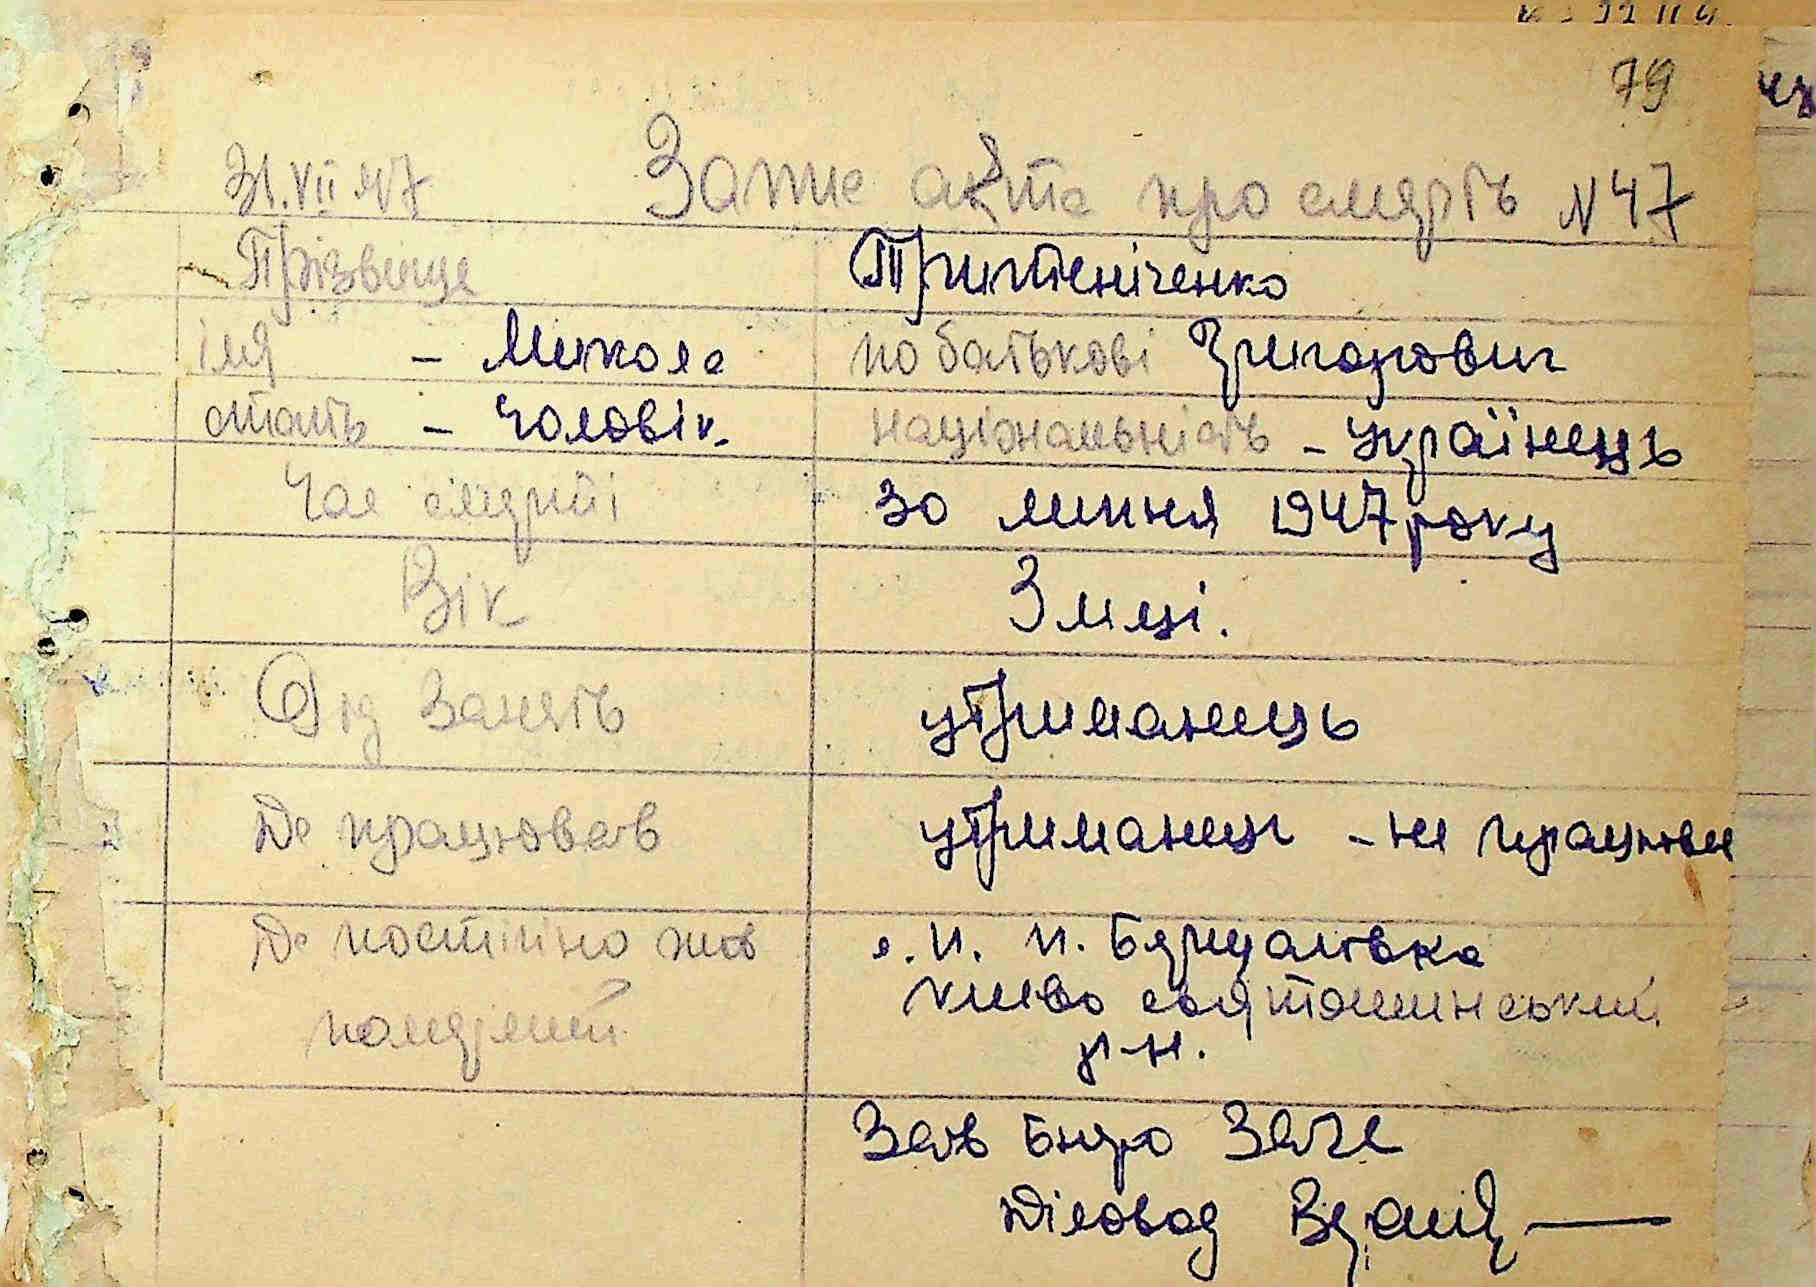 79
31.VII 47 Запис акта про смерть N 47
Прізвище
імя - Микола по батькові Григорович
стать - чоловік національність - українець
Час смерті 30 липня 1947 року
Вік 3 м-ці.
Рід занять утриманець
Де працював утриманець - не працював
Де постійно жив
померший
київо святошинський
р-н.
Зав Бюро Загс
Діловод